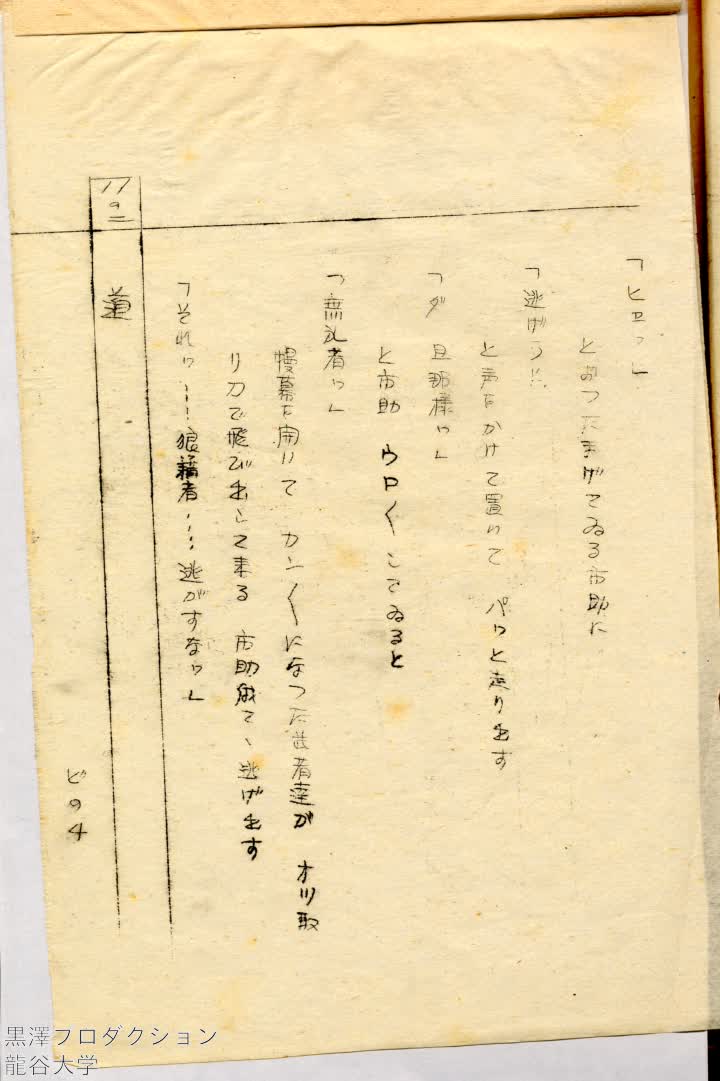 「ヒエッ」
とおつたまげてゐる市助に
「逃げろ!!
と声をかけて置いて パッと走り出す
「ダ 旦那様ッ」
と市助 ウロ〱してゐると
「無礼者ッ」
慢幕を開いて カン〱になつた 者達が オツ取
り刀で飛び出して来る 市助 てゝ逃げ出す
「それッ…! 狼藉者…. 逃がすなッ」
17の二
道
どの4
黒澤プロダクション
龍谷大学